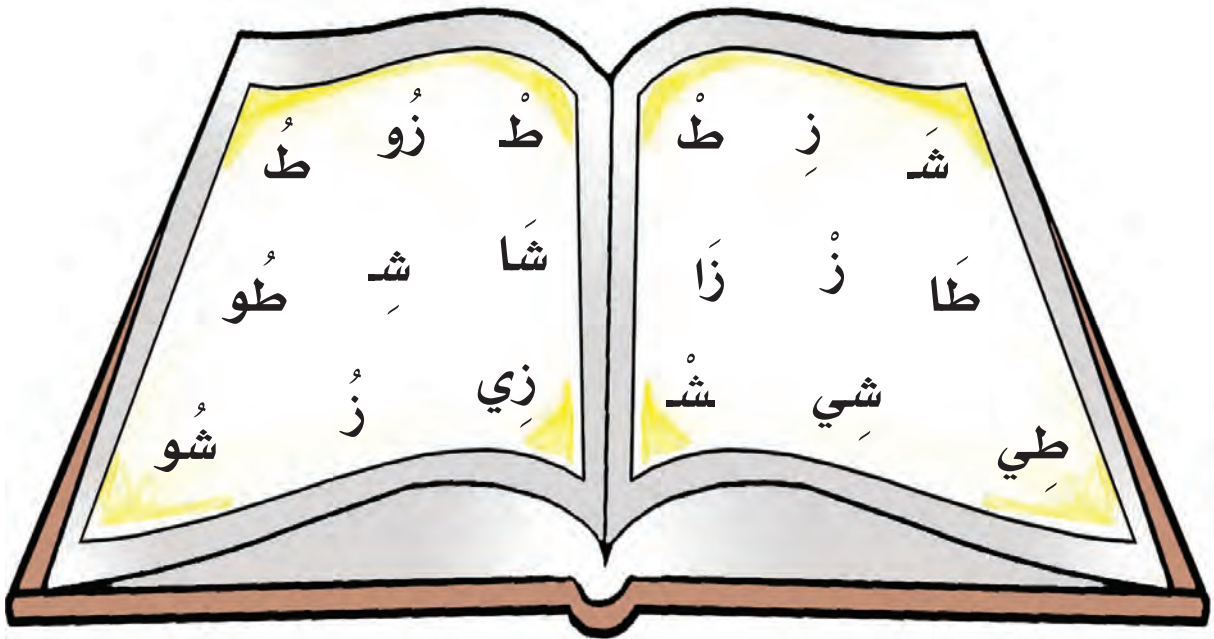 شَـ زِ طْ
طَا زْ زَا
طِي شِي ـشْـ
طْ زُو طُ
شَا شِـ طُو
زِي زُ شُو